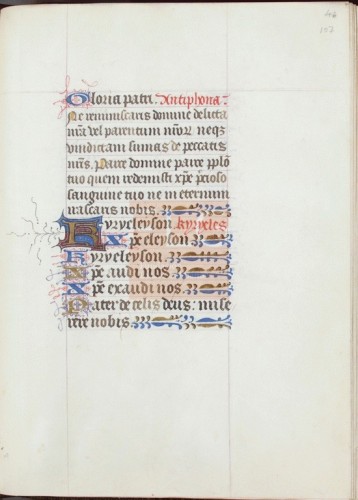 Gloria patri. Antiphona.
Ne reminiscaris domine delicta
nr̄a vel parentum nr̄or neqz
vindictam sumas de peccatis
nr̄is. Parce domine parce pp̄lo
tuo quem redemisti xp̄e precioso
sanguine tuo ne in eternum
irascaris nobis.
Kyryeleyson. kyryeles
Xp̄eeleyson.
Kyryeleyson.
Xp̄e audi nos.
Xp̄e exaudi nos.
Pater de celis deus: mise
rere nobis.